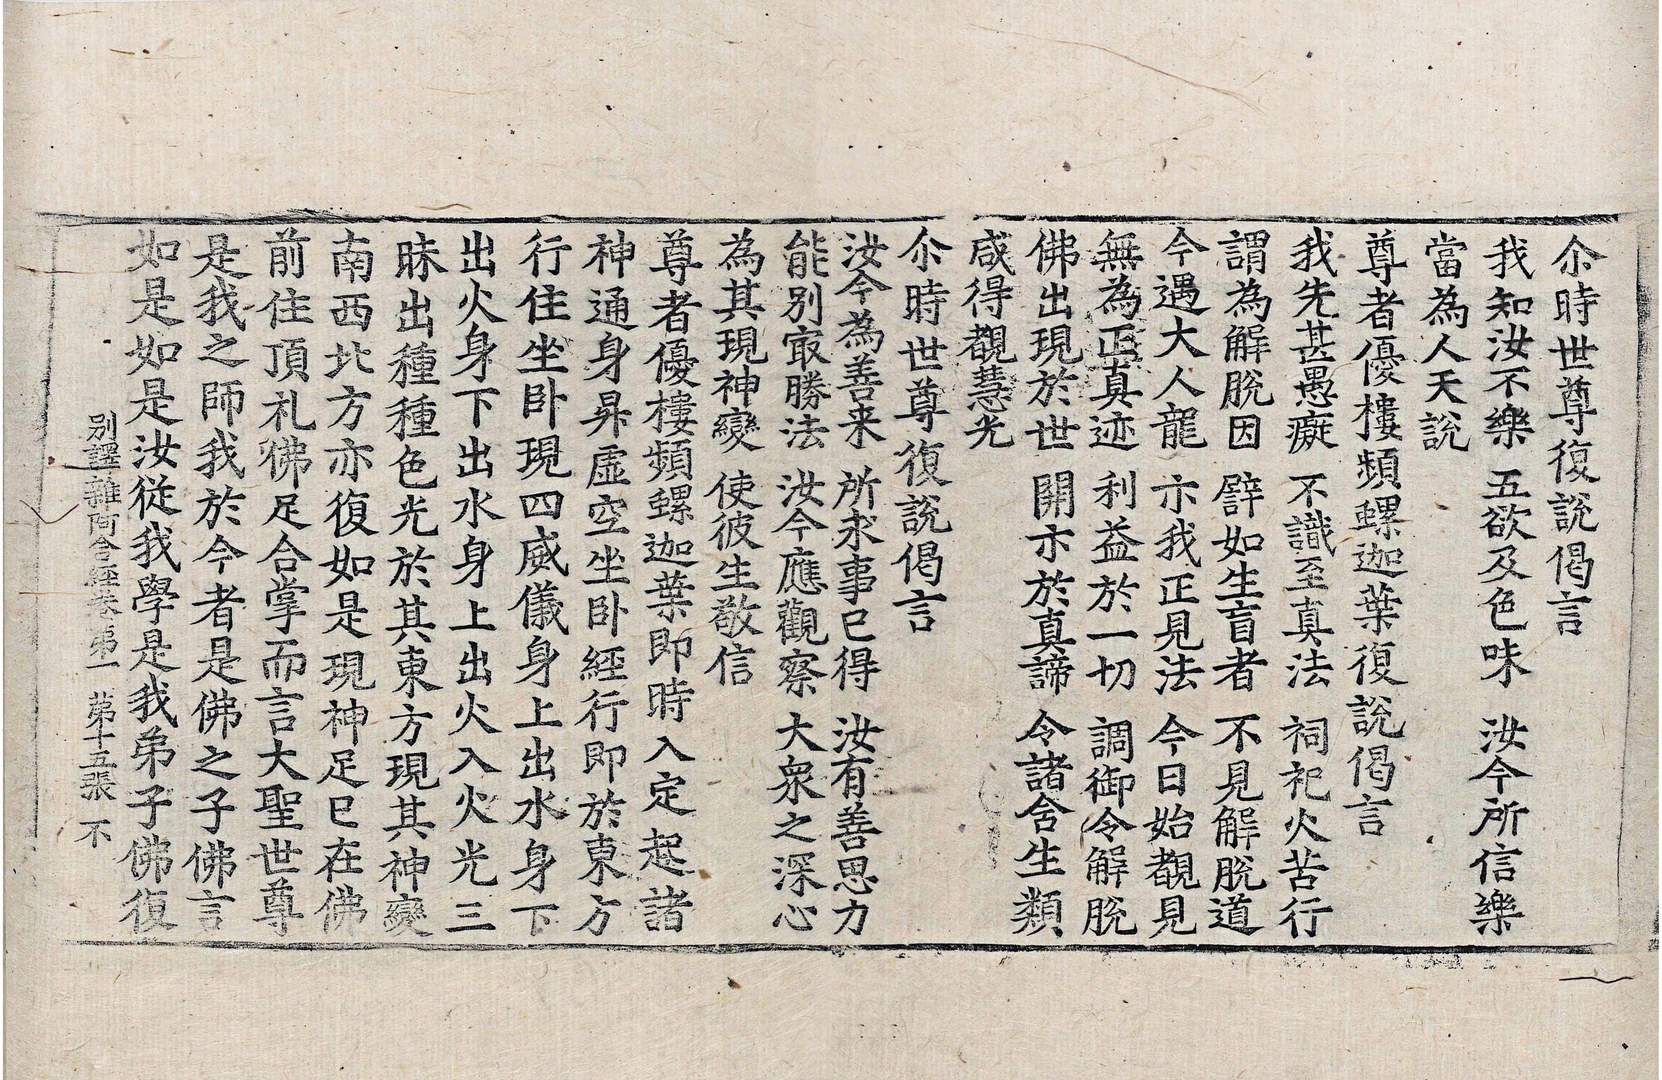 尒時世尊復說偈言
我知汝不樂 五欲及色味 汝今所信樂
當為人天說
尊者優樓頻螺迦葉復說偈言
我先甚愚癡 不識至真法 祠祀火苦行
謂為解脫因 譬如生盲者 不見解脫道
今遇大人龍 示我正見法 今日始覩見
無為正真迹 利益於一切 調御令解脫
佛出現於世 開示於真諦 令諸含生類
咸得覩慧光
尒時世尊復說偈言
汝今為善来 所求事已得 汝有善思力
能別㝡勝法 汝今應觀察 大衆之深心
為其現神變 使彼生敬信
尊者優樓頻螺迦葉即時入定起諸
神通身昇虛空坐卧經行即於東方
行住坐卧現四威儀身上出水身下
出火身下出水身上出火入火光三
昧出種種色光於其東方現其神變
南西北方亦復如是現神足已在佛
前住頂礼佛足合掌而言大聖世尊
是我之師我於今者是佛之子佛言
如是如是汝從我學是我弟子佛復
別譯雜阿含經卷第一 第十五張 不